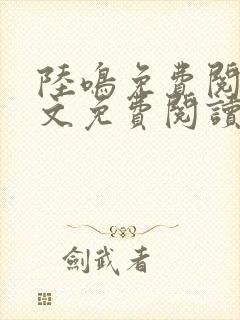 陸鳴免費閱
文免費閱讀
劍武者